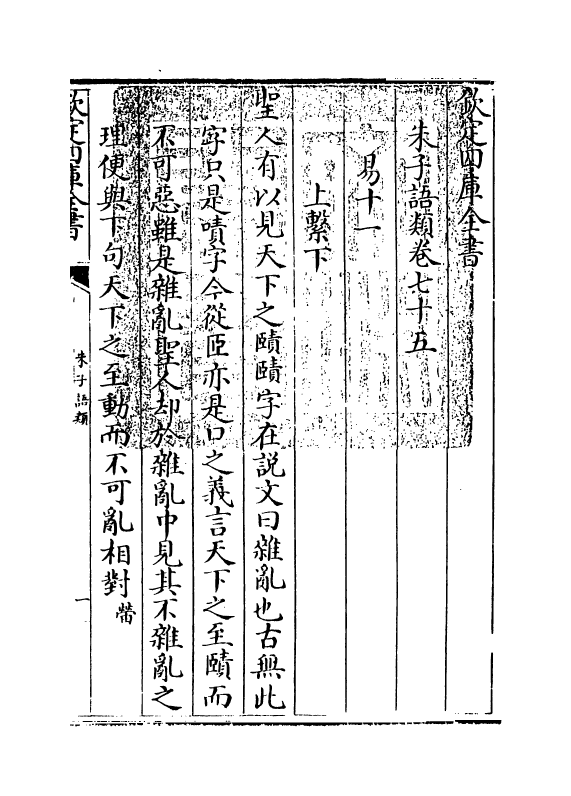 欽定四庫全書
朱子語類卷七十五
易十一
上繫下
聖人有以見天下之賾賾字在説文曰雜亂也古無此
字只是嘖字今從𦣞亦是口之義言天下之至賾而
不可惡雖是雜亂聖人却於雜亂中見其不雜亂之
理便與下句天下之至動而不可亂相對㽦
欽定四庫全書
朱子語類
一